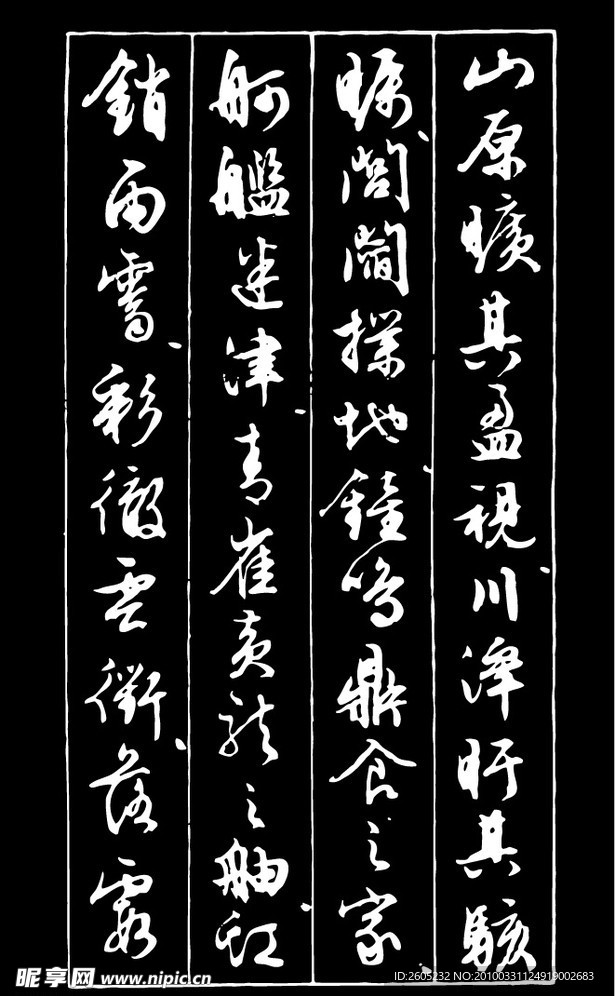 山原曠其盈視、川澤盱其駭
矚、閭閻撲地、鐘鳴鼎食之家
舸艦迷津、青雀黃龍之舳、虹
銷雨霽、彩徹雲衢、落霞
昵享网 www.nipic.cn
ID:2605232 NO:20100331124919002683